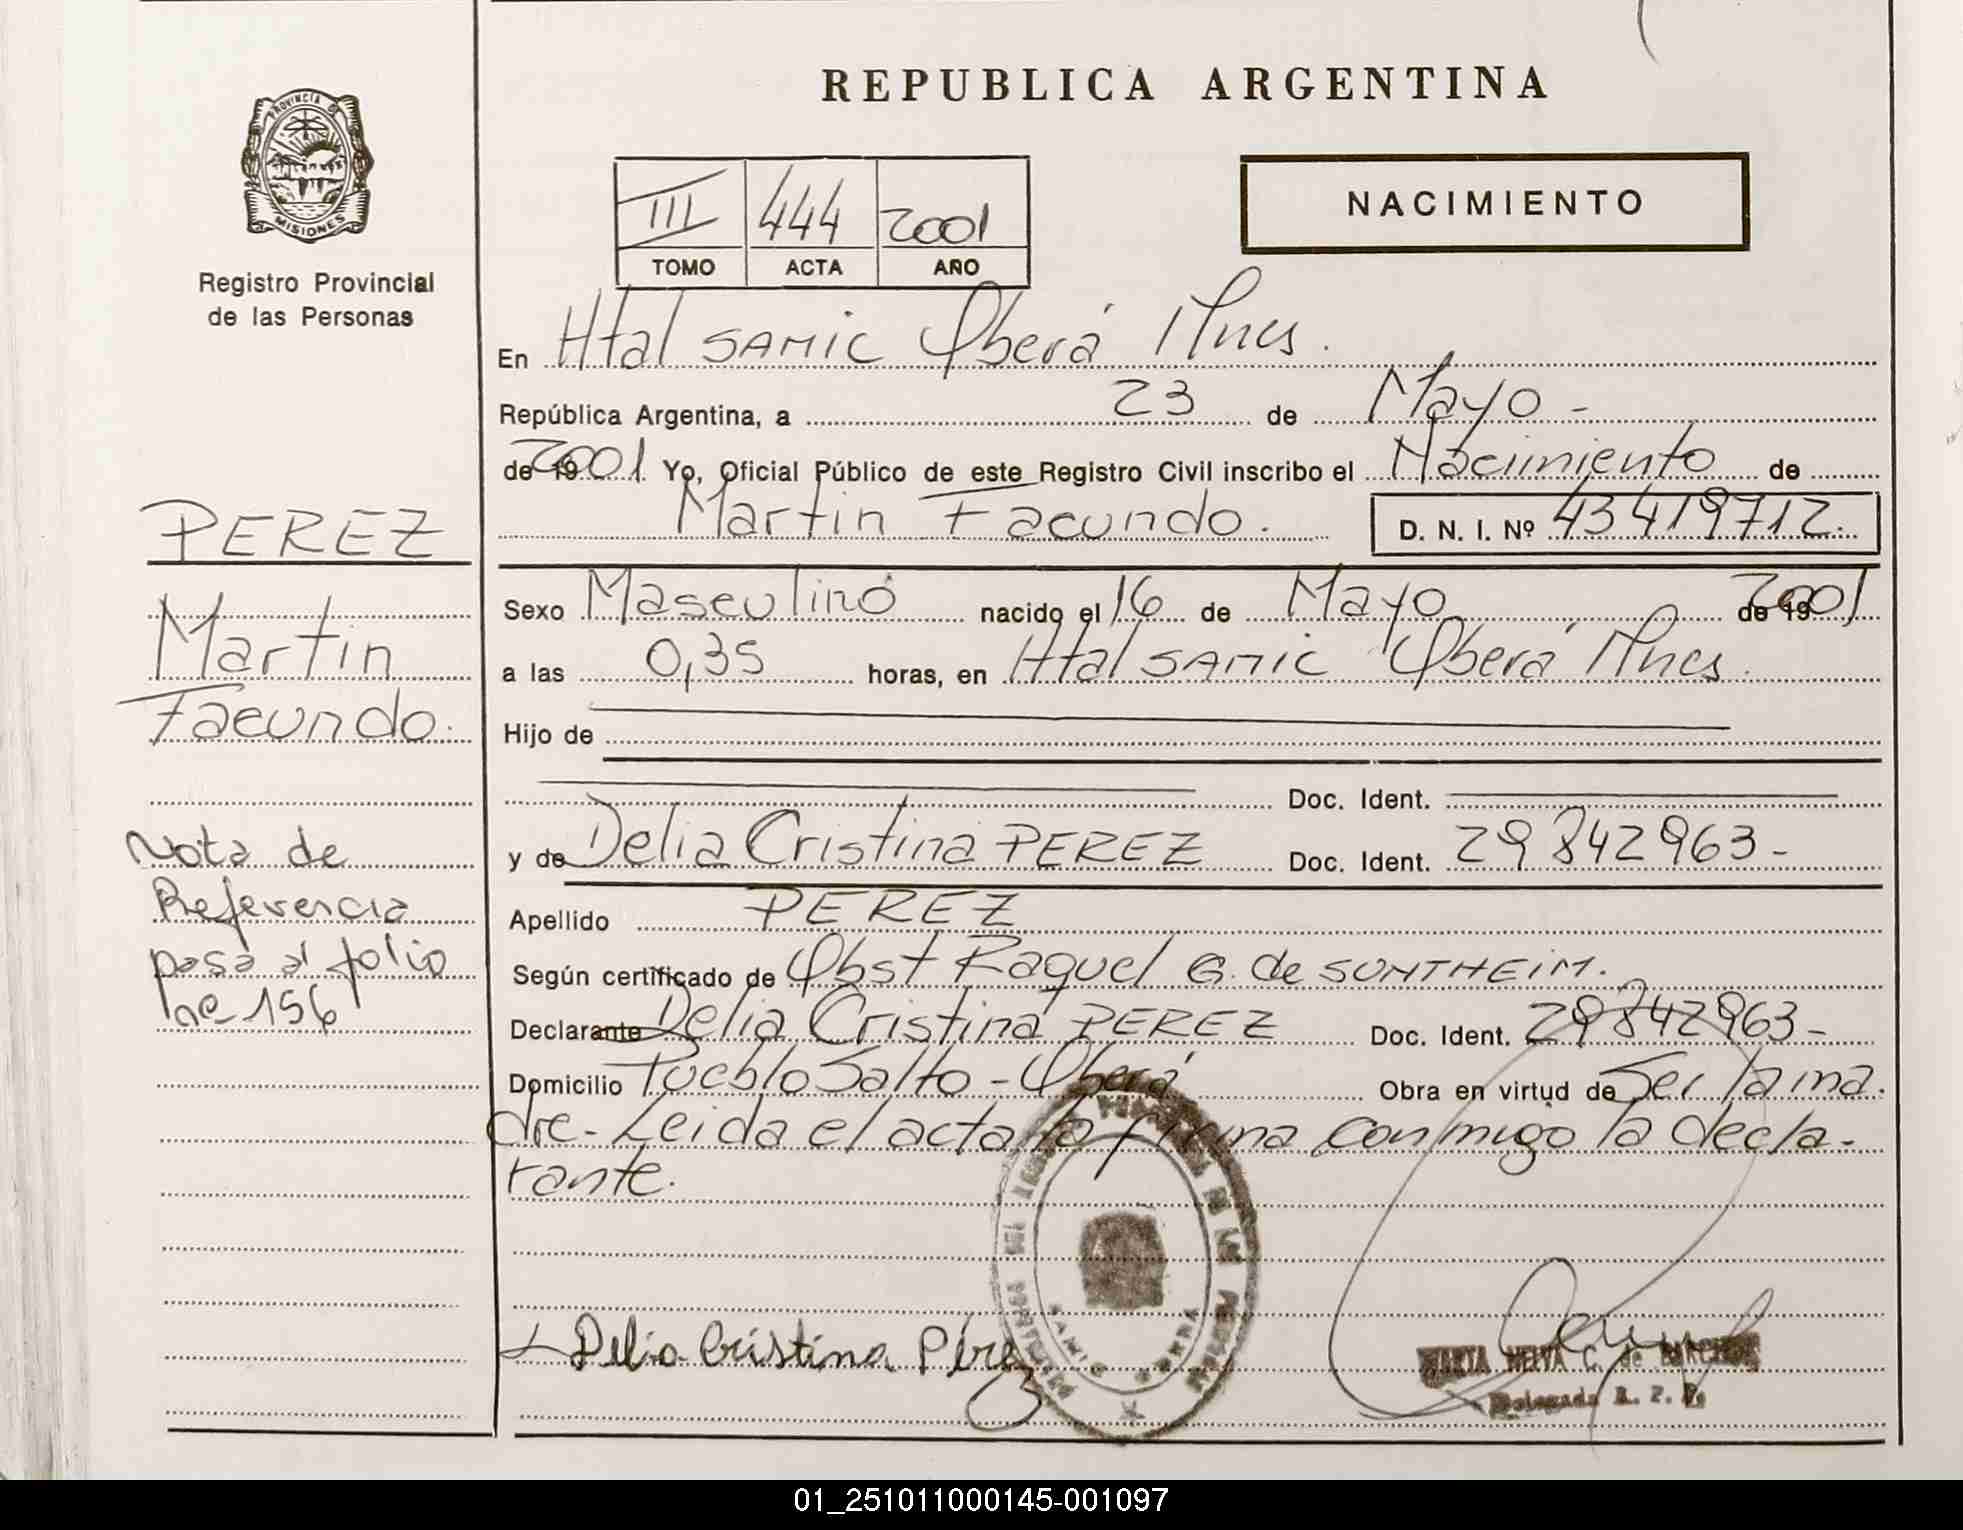 REPUBLICA ARGENTINA
PROVINCIA DE
MISIONES
Registro Provincial
de las Personas
III 444 2001
TOMO ACTA AÑO
NACIMIENTO
En Htal SAMIC Oberá Mnes.
República Argentina, a 23 de Mayo -
de 19 2001. Yo, Oficial Público de este Registro Civil inscribo el Nacimiento de
Martin Facundo. D. N. I. Nº 43419712.
PEREZ
Martin
Facundo.
Sexo Masculino nacido el 16 de Mayo de 19 2001
a las 0,35 horas, en Htal SAMIC Oberá Mnes.
Hijo de
Doc. Ident.
y de Delia Cristina PEREZ Doc. Ident. 29842963-
Apellido PEREZ
Según certificado de Obst Raquel G. de SONTHEIM.
Declarante Delia Cristina PEREZ Doc. Ident. 29842963-
Domicilio Pueblo Salto - Oberá Obra en virtud de Ser la ma
dre- Leida el acta la firma conmigo la decla-
rante.
Nota de
Referencia
pasa al folio
nº 156
Delia Cristina Pérez
MARTA C. de
Delegada R. P. P.
01_251011000145-001097